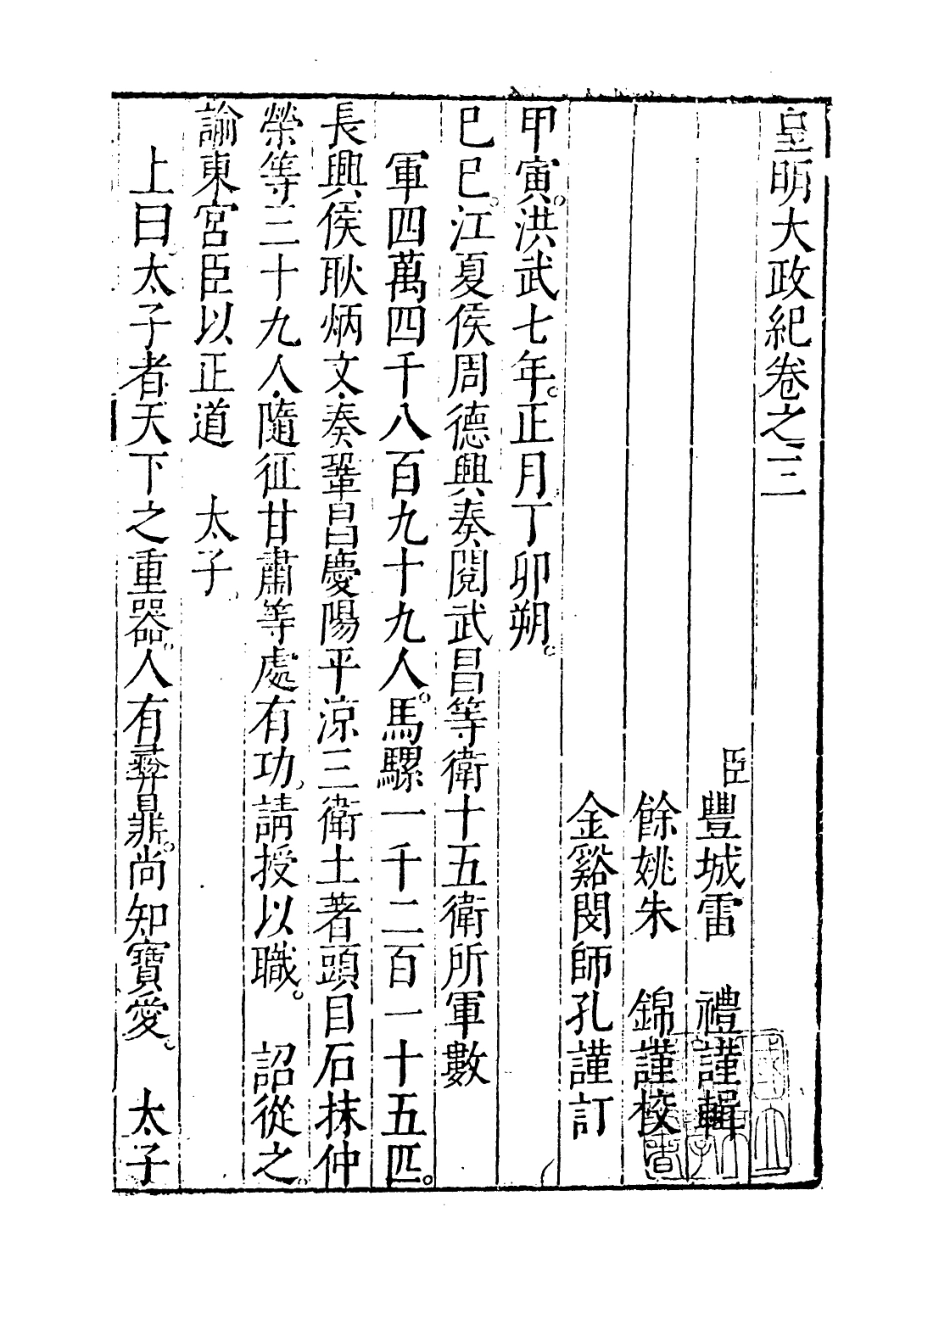 皇明大政紀卷之三
臣豐城雷　禮謹輯
餘姚朱　錦謹校
金谿閔師孔謹訂
甲寅。洪武七年。正月丁卯朔。
己巳。江夏侯周德興奏閱武昌等衛十五衛所軍數
軍四萬四千八百九十九人。馬騾一千二百一十五匹。
長興侯耿炳文奏鞏昌慶陽平涼三衛土著頭目石抹仲
榮等三十九人隨征甘肅等處有功。請授以職。　詔從之。
諭東宮臣以正道　太子。
上曰。太子者天下之重器。人有彝鼎。尚知寶愛。　太子